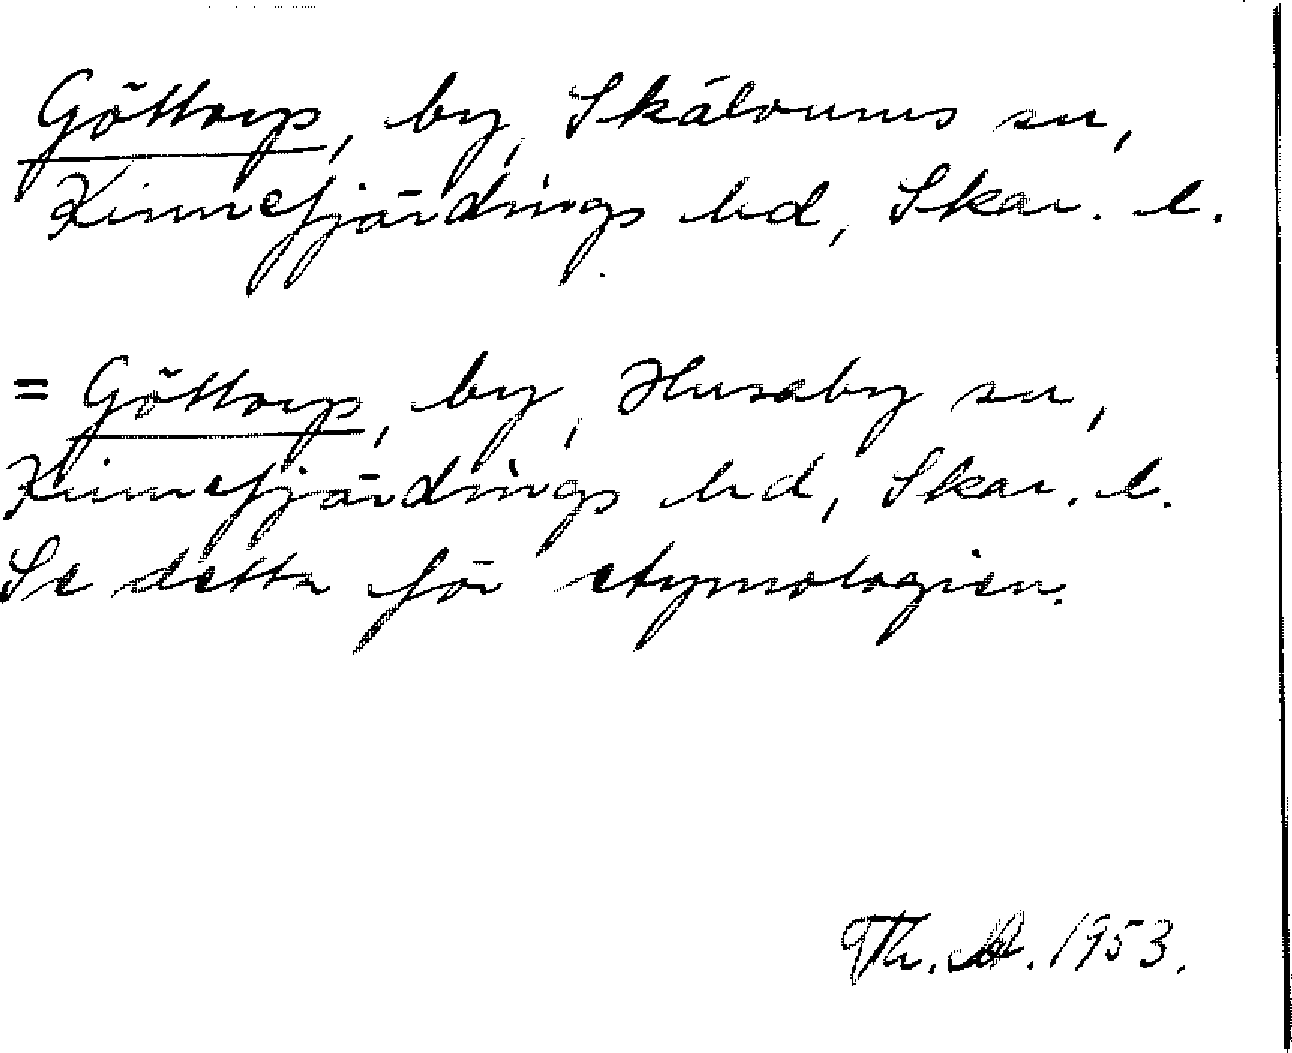 Göttorp, by, Skälvums sn,
Kinnefjärdings hd, Skar. l.
= Göttorp, by, Husaby sn,
Kinnefjärdings hd, Skar. l.
Se detta för etymologien.
Th. A. 1953.